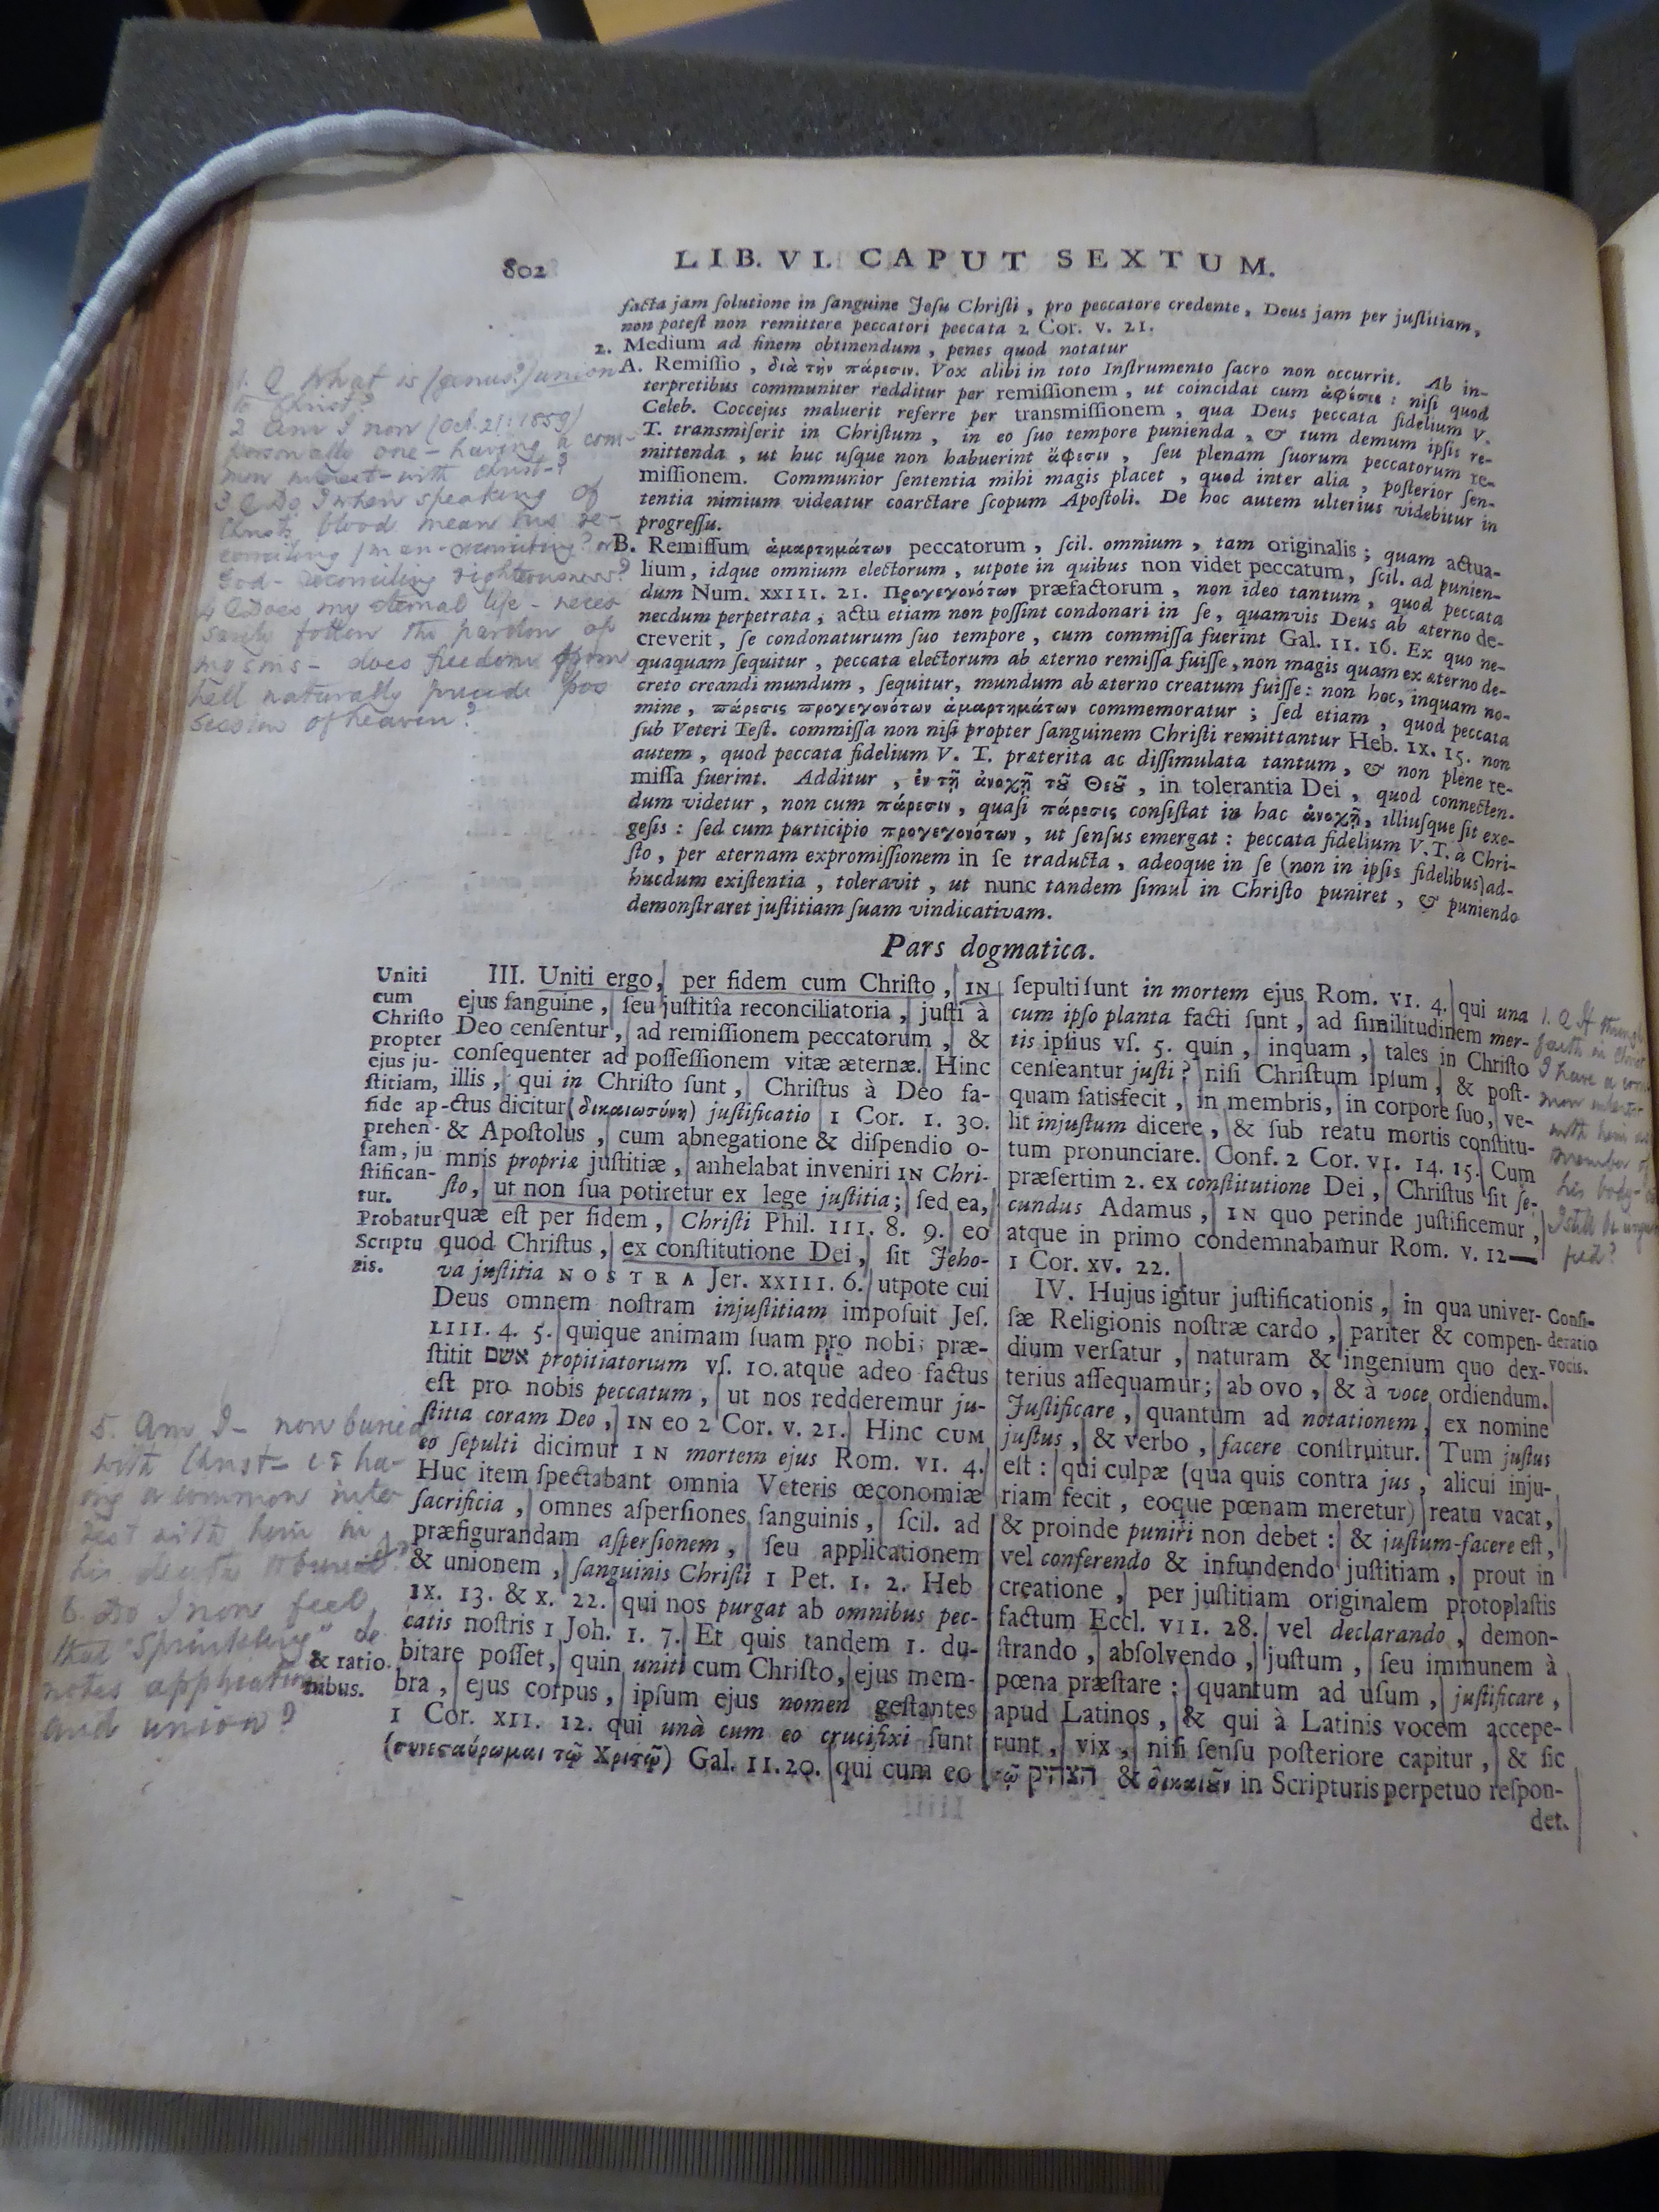 802
LIB. VI. CAPUT SEXTUM.
facta jam ſolutione in ſanguine Jeſu Chriſti, pro peccatore credente, Deus jam per juſtitiam,
non poteſt non remittere peccatori peccata 2 Cor. V. 21.
2. Medium ad finem obtinendum, penes quod notatur
A. Remiſſio, διὰ τὴν πάρεσιν. Vox alibi in toto Inſtrumento ſacro non occurrit. Ab in-
terpretibus communiter redditur per remiſſionem, ut coincidat cum ἀφέσει: niſi quod
Celeb. Coccejus maluerit referre per transmiſſionem, qua Deus peccata fidelium V.
T. transmiſerit in Chriſtum, in eo ſuo tempore punienda, & tum demum ipſis re-
mittenda, ut huc uſque non habuerint ἄφεσιν, ſeu plenam ſuorum peccatorum re-
miſſionem. Communior ſententia mihi magis placet, quod inter alia, poſterior ſen-
tentia nimium videatur coarctare ſcopum Apoſtoli. De hoc autem ulterius videbitur in
progreſſu.
B. Remiſſum ἁμαρτημάτων peccatorum, ſcil. omnium, tam originalis; quam actua-
lium, idque omnium electorum, utpote in quibus non videt peccatum, ſcil. ad punien-
dum Num. XXIII. 21. Προγεγονότων præfactorum, non ideo tantum, quod peccata
necdum perpetrata, actu etiam non poſſint condonari in ſe, quamvis Deus ab æterno de-
creverit, ſe condonaturum ſuo tempore, cum commiſſa fuerint Gal. II. 16. Ex quo ne-
quaquam ſequitur, peccata electorum ab æterno remiſſa fuiſſe, non magis quam ex æterno de-
creto creandi mundum, ſequitur, mundum ab æterno creatum fuiſſe: non hoc, inquam no-
mine, πάρεσις προγεγονότων ἁμαρτημάτων commemoratur; ſed etiam, quod peccata
ſub Veteri Teſt. commiſſa non niſi propter ſanguinem Chriſti remittantur Heb. IX. 15. non
autem, quod peccata fidelium V. T. præterita ac diſſimulata tantum, & non plene re-
miſſa fuerint. Additur, ἐν τῇ ἀνοχῇ τȣ͂ Θεȣ͂, in tolerantia Dei, quod connecten-
dum videtur, non cum πάρεσιν, quaſi πάρεσις conſiſtat in hac ἀνοχῇ, illiuſque ſit exe-
geſis: ſed cum participio προγεγονότων, ut ſenſus emergat: peccata fidelium V. T. à Chri-
ſto, per æternam expromiſſionem in ſe traducta, adeoque in ſe (non in ipſis fidelibus) ad-
hucdum exiſtentia, toleravit, ut nunc tandem ſimul in Chriſto puniret, & puniendo
demonſtraret juſtitiam ſuam vindicativam.
1. Q What is (genus?) union
to Christ?
2 Am I now (Oct. 21: 1859)
personally one - having a com-
mon interest - with Christ?
3 Q Do I when speaking of
Christs blood mean his re-
conciling / man-reconciling? or
God-reconciling righteousness?
4 Q Does my eternal life - neces
sarily follow the pardon of
my sins - does freedom from
hell naturally precede pos
session of heaven?
Pars dogmatica.
Uniti
cum
Chriſto
propter
ejus ju-
ſtitiam,
fide ap-
prehen-
ſam, ju
ſtifican-
tur.
Probatur
Scriptu
ris.
III. Uniti ergo, per fidem cum Chriſto, IN
ejus ſanguine, ſeu juſtitîa reconciliatoria, juſti à
Deo cenſentur, ad remiſſionem peccatorum, &
conſequenter ad poſſeſſionem vitæ æternæ. Hinc
illis, qui in Chriſto ſunt, Chriſtus à Deo fa-
ctus dicitur (δικαιωσύνη) juſtificatio 1 Cor. I. 30.
& Apoſtolus, cum abnegatione & diſpendio o-
mnis propriæ juſtitiæ, anhelabat inveniri IN Chri-
ſto, ut non ſua potiretur ex lege juſtitia; ſed ea,
quæ eſt per fidem, Chriſti Phil. III. 8. 9. eo
quod Chriſtus, ex conſtitutione Dei, ſit Jeho-
va juſtitia NOSTRA Jer. XXIII. 6. utpote cui
Deus omnem noſtram injuſtitiam impoſuit Jeſ.
LIII. 4. 5. quique animam ſuam pro nobis præ-
ſtitit אשם propitiatorium vſ. 10. atque adeo factus
eſt pro nobis peccatum, ut nos redderemur ju-
ſtitia coram Deo, IN eo 2 Cor. V. 21. Hinc CUM
eo ſepulti dicimur IN mortem ejus Rom. VI. 4.
Huc item ſpectabant omnia Veteris œconomiæ
ſacrificia, omnes aſperſiones ſanguinis, ſcil. ad
præfigurandam aſperſionem, ſeu applicationem
& unionem, ſanguinis Chriſti 1 Pet. I. 2. Heb
IX. 13. & X. 22. qui nos purgat ab omnibus pec-
catis noſtris 1 Joh. I. 7. Et quis tandem 1. du-
bitare poſſet, quin uniti cum Chriſto, ejus mem-
bra, ejus corpus, ipſum ejus nomen geſtantes
1 Cor. XII. 12. qui unà cum eo crucifixi ſunt
(συνεσαύρωμαι τῷ Χριστῷ) Gal. II. 20. qui cum eo
& ratio-
nibus.
5. Am I - now buried
with Christ - is ha-
ving a common inte-
rest with him in
his death & burial?
6. Do I now feel
that "Sprinkling" de
notes application
and union?
ſepulti ſunt in mortem ejus Rom. VI. 4. qui una
cum ipſo planta facti ſunt, ad ſimilitudinem mor-
tis ipſius vſ. 5. quin, inquam, tales in Chriſto
cenſeantur juſti? niſi Chriſtum ipſum, & poſt-
quam ſatisfecit, in membris, in corpore ſuo, ve-
lit injuſtum dicere, & ſub reatu mortis conſtitu-
tum pronunciare. Conf. 2 Cor. VI. 14. 15. Cum
præſertim 2. ex conſtitutione Dei, Chriſtus ſit ſe-
cundus Adamus, IN quo perinde juſtificemur,
atque in primo condemnabamur Rom. V. 12—
1 Cor. XV. 22.
IV. Hujus igitur juſtificationis, in qua univer-
ſæ Religionis noſtræ cardo, pariter & compen-
dium verſatur, naturam & ingenium quo dex-
terius aſſequamur; ab ovo, & à voce ordiendum.
Juſtificare, quantum ad notationem, ex nomine
juſtus, & verbo, facere conſtruitur. Tum juſtus
eſt: qui culpæ (qua quis contra jus, alicui inju-
riam fecit, eoque pœnam meretur) reatu vacat,
& proinde puniri non debet: & juſtum-facere eſt,
vel conferendo & infundendo juſtitiam, prout in
creatione, per juſtitiam originalem protoplaſtis
factum Eccl. VII. 28. vel declarando, demon-
ſtrando, abſolvendo, juſtum, ſeu immunem à
pœna præſtare: quantum ad uſum, juſtificare,
apud Latinos, & qui à Latinis vocem accepe-
runt, vix, niſi ſenſu poſteriore capitur, & ſic
τῷ הצדיק & δικαιȣ͂ν in Scripturis perpetuo reſpon-
det.
Conſi-
deratio
vocis.
1. Q If through
faith in Christ
I have a com
mon interest
with him as
member of
his body -